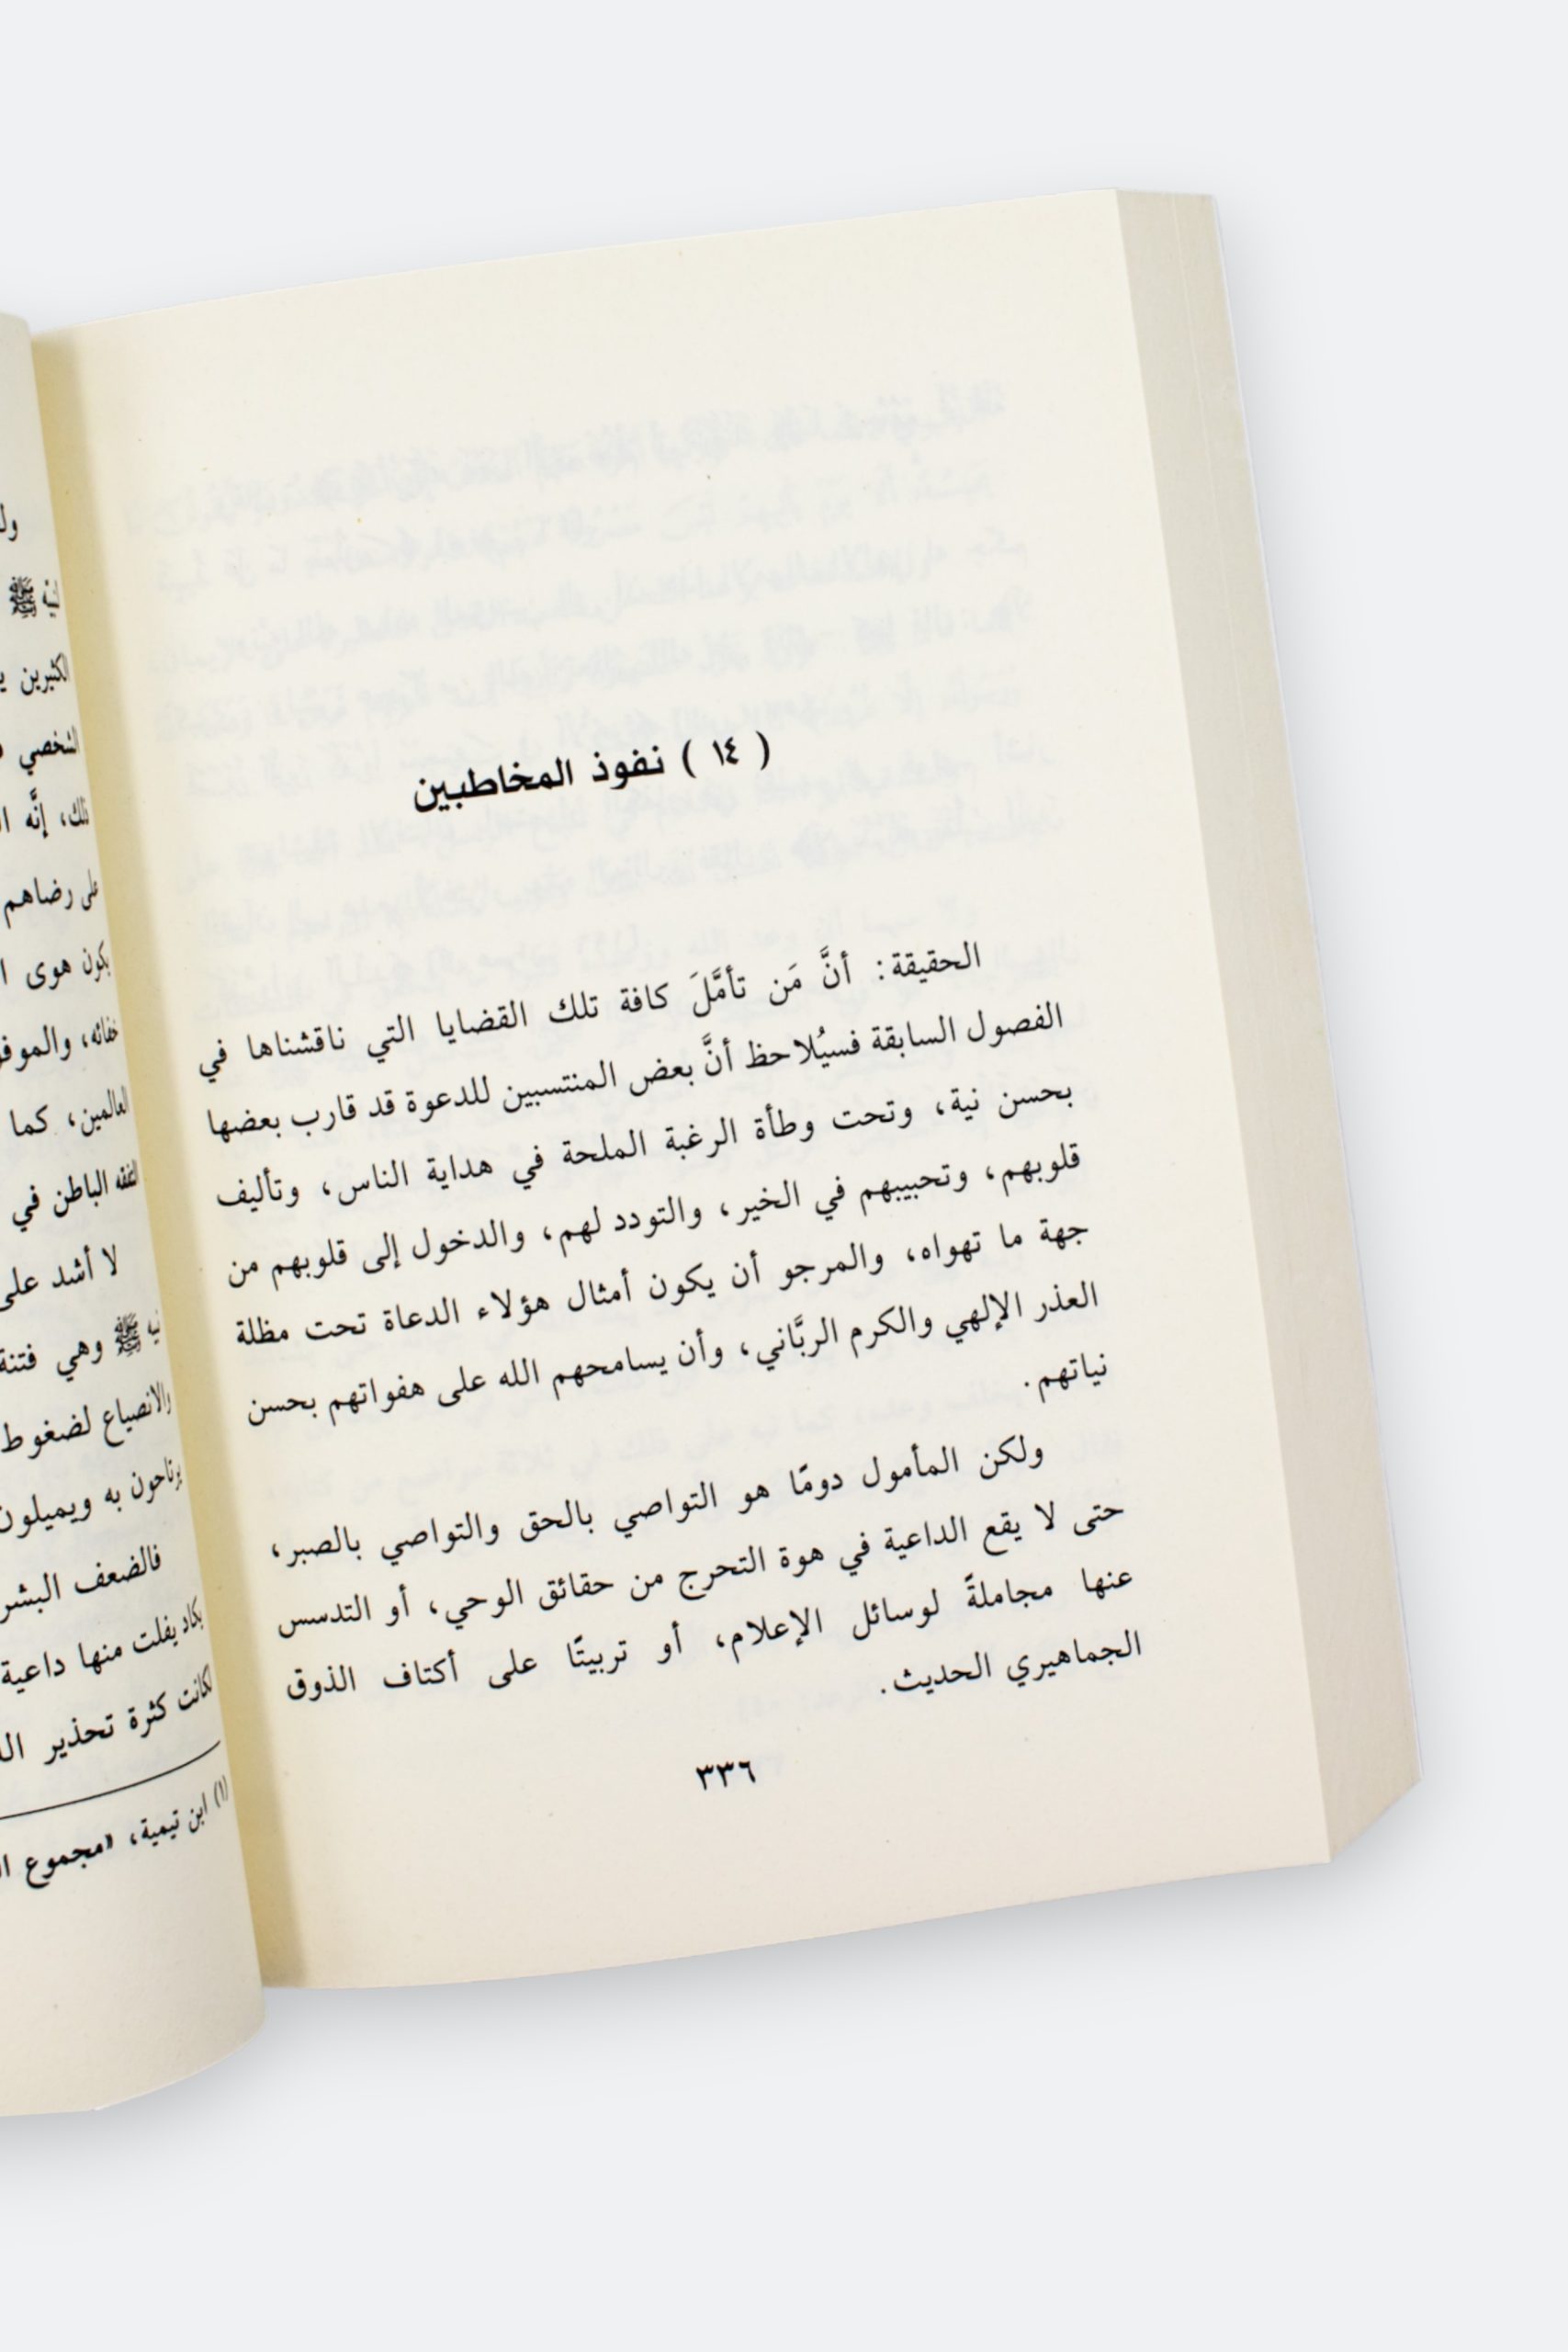 ( ١٤ ) نفوذ المخاطبين
الحقيقة: أنَّ مَن تأمَّلَ كافة تلك القضايا التي ناقشناها في
الفصول السابقة فسيُلاحظ أنَّ بعض المنتسبين للدعوة قد قارب بعضها
بحسن نية، وتحت وطأة الرغبة الملحة في هداية الناس، وتأليف
قلوبهم، وتحبيبهم في الخير، والتودد لهم، والدخول إلى قلوبهم من
جهة ما تهواه، والمرجو أن يكون أمثال هؤلاء الدعاة تحت مظلة
العذر الإلهي والكرم الربَّاني، وأن يسامحهم الله على هفواتهم بحسن
نياتهم.
ولكن المأمول دومًا هو التواصي بالحق والتواصي بالصبر،
حتى لا يقع الداعية في هوة التحرج من حقائق الوحي، أو التدسس
عنها مجاملةً لوسائل الإعلام، أو تربيتًا على أكتاف الذوق
الجماهيري الحديث.
٣٣٦
ﷺ
الكثيرين
الشخصي
ذلك، إنَّه
على رضاهم
يكون هوى
خفائه،
العالمين، كما
الفقه الباطن في
لا أشد على
ﷺ وهي فتنة
والانصياع لضغوط
يرتاحون به ويميلون
فالضعف
يكاد يفلت منها داعية
لكانت كثرة تحذير
(١) ابن تيمية، «مجموع